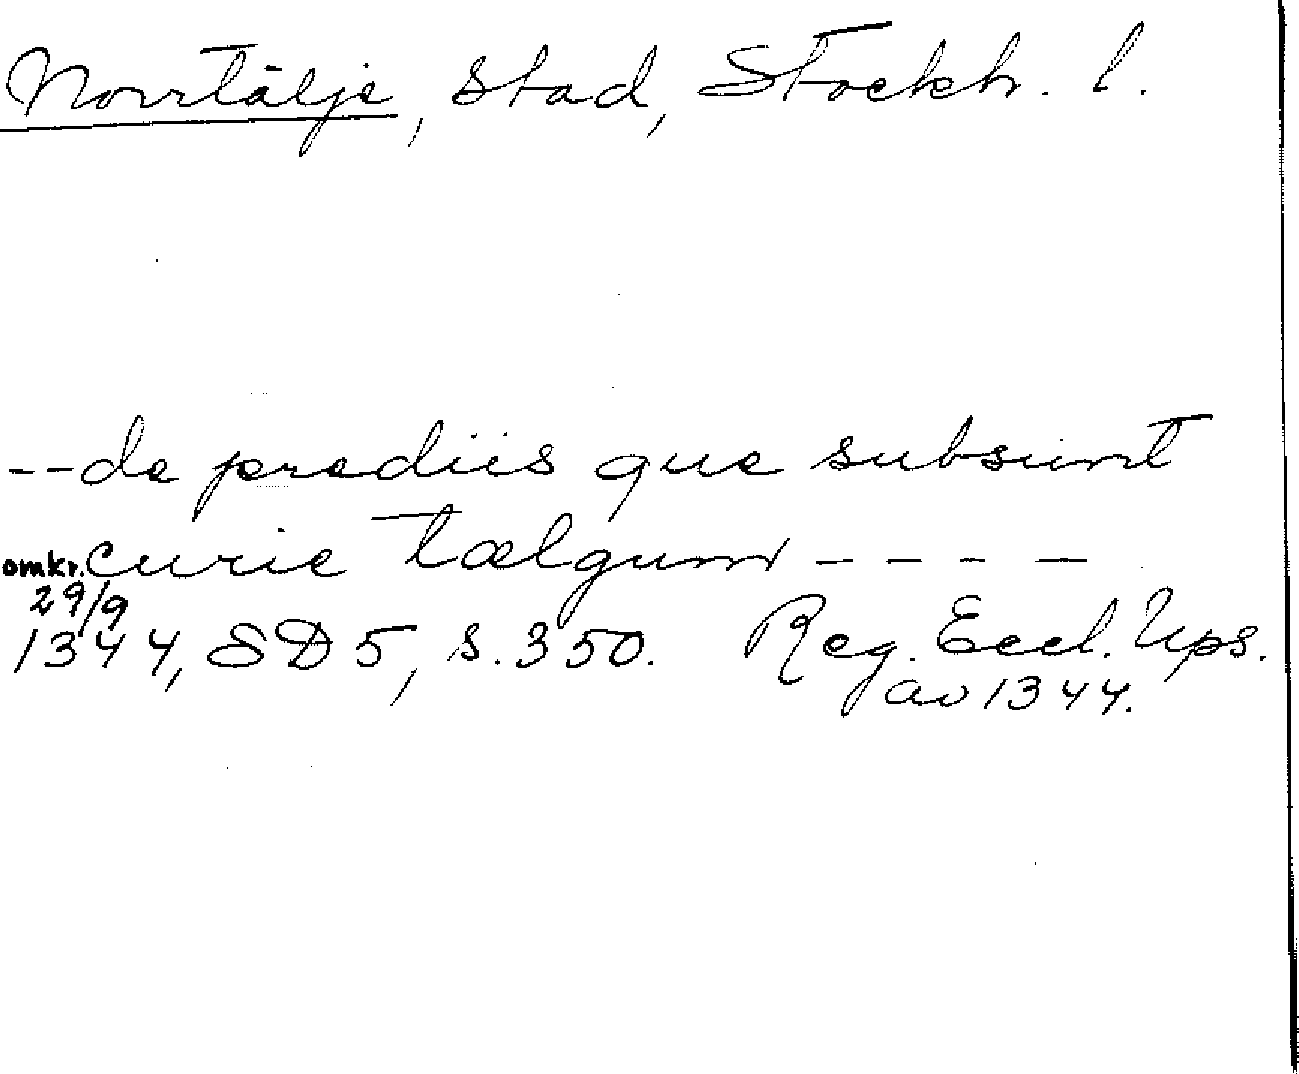 Norrtälje, stad, Stockh. l.
--de prediis que subsunt
curie Tælgum - - - -
omkr.
29/9
1344, SD 5, s. 350. Reg. Eccl. Ups.
av 1344.